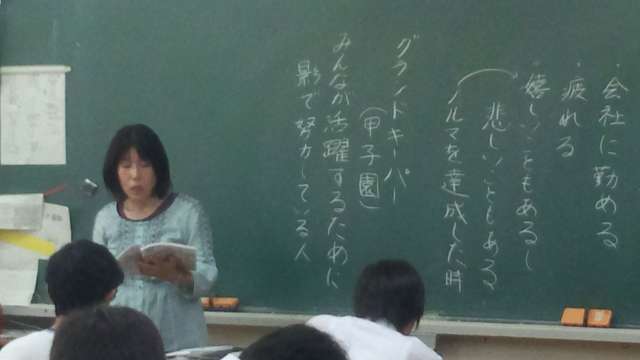 ・会社に勤める
・疲れる
・嬉しいこともあるし
悲しいこともある
ノルマを達成した時
グランドキーパー
（甲子園）
みんなが活躍するために
影で努力している人